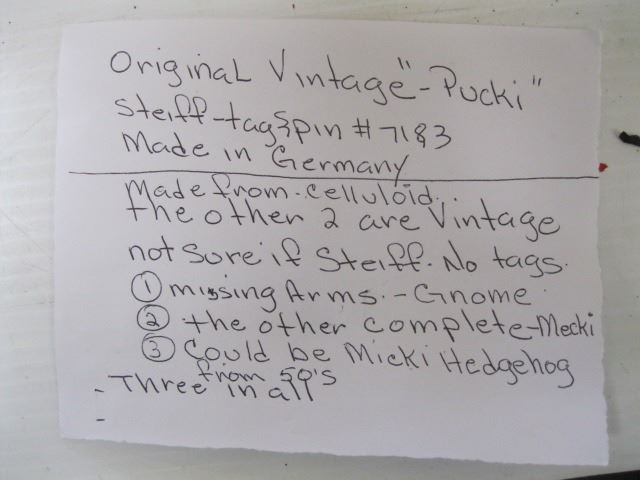 Original Vintage "-Pucki"
Steiff-tag&pin #7183
Made in Germany
Made from-celluloid.
the other 2 are Vintage
not Sure if Steiff. No tags.
① missing Arms.-Gnome
② the other complete-Mecki
③ Could be Micki Hedgehog
from 50's
- Three in all
-